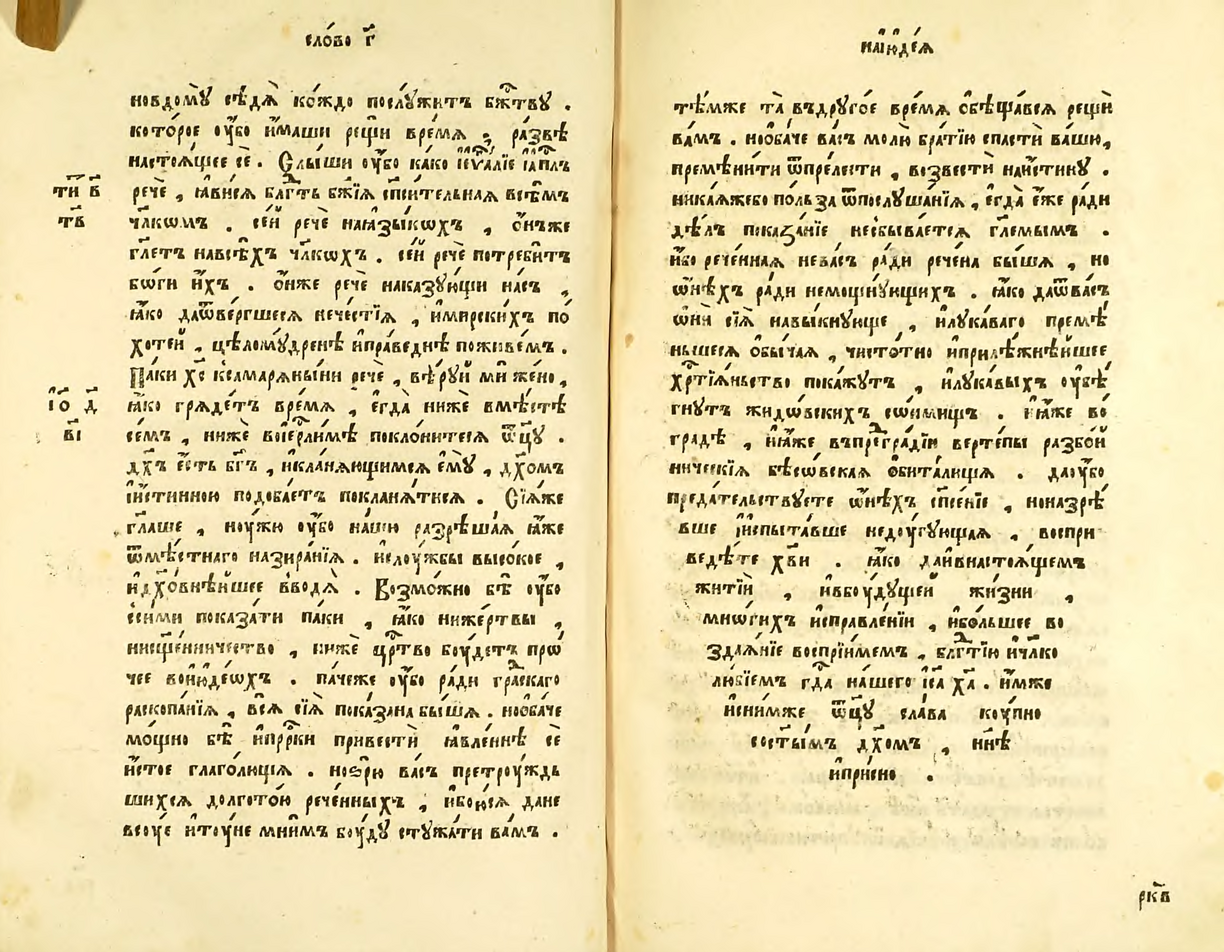 сло́во г҃
новдомꙋ̀ сѣ́дѧ ко́ждо послꙋ́житъ бж҃твꙋ .
кото́рое оу҆́бо и҆́маши рещи̑ вре́мѧ , ра́звѣ
настоѧ́щее сѐ . Слы́ши оу҆́бо ка́ко
ти в҃
рече̑ , ꙗ҆ви́сѧ блг҃ть бж҃їѧ сп҃си́тельнаѧ всѣ́мъ
тв
чл҃кѡмъ . се́й рече̑ наꙗ҆зы́кѡхъ , ѻ҆́нъже
гл҃етъ навсѣ́хъ чл҃кѡхъ . се́й рече̑ потреби́тъ
бѡ́ги и҆́хъ . ѻ҆́нже рече̑ наказꙋ́ющи на́съ ,
ꙗ҆́ко даѿве́ргшеесѧ нече́стїѧ , и҆мирски́хъ по́
хоте́й , цѣломꙋ́дренѣ и҆пра́веднѣ поживе́мъ .
Па́ки хс҃ ксамарѧны́ни рече̑ , вѣ́рꙋй ми же́но ,
і҆о д҃
ꙗ҆́ко грѧде́тъ вре́мѧ , е҆гда̀ ниже̑ вмѣ́стѣ
в҃і
се́мъ , ниже̑ вое҆рл҃и́мѣ поклони́тесѧ ѻ҆ц҃ꙋ̀ .
дх҃ъ є҆́сть бг҃ъ , и҆кла́нѧющимсѧ є҆мꙋ̀ , дх҃омъ
и҆и҆́стинною подоба́етъ покланѧ́тисѧ . Сїѧ́же
гл҃аше , ноу́жю оу҆́бо на́шю разрѣша́ѧ ꙗ҆́же
ѿмѣ́стнаго назира́нїѧ . и҆слоу́жбы высо́кое ,
и҆дх҃о́внѣйшее вводѧ̀ . Возмо́жно бѣ̀ оу҆́бо
се́ими показа́ти па́ки , ꙗ҆́ко ниже́ртвы ,
нисщ҃е́нничество , ниже̑ цр҃тво бꙋ́детъ про́
чее вои҆ю҆де́ѡхъ . па́чеже оу҆́бо ра́ди гра́дскаго
раскопа́нїѧ , всѧ̑ сїѧ̑ пока́зана бы́шѧ . нѻ҆ба́че
мо́щно бѣ̀ и҆прр҃ки привести̑ ꙗ҆вле́ннѣ сѐ
и҆́стое глаго́лющїѧ . нозрю̀ ва́съ претрꙋ́ждь
шихсѧ долгото́ю рече́нныхъ , и҆бою́сѧ дане
всꙋ́е и҆тꙋ́не мни́мъ бꙋ́дꙋ стꙋжа́ти ва́мъ .
наїю҆де́ѧ
тѣ́мже та̀ въдрꙋго́е вре́мѧ ѡ҆бѣща́всѧ рещи̑
ва́мъ . нѻ҆ба́че ва́съ молю̀ бра́тїю спасти̑ ва́шю ,
премѣни́ти ѿпре́лести , возвести̑ наи҆́стинꙋ .
никаѧ́жебо по́льза ѿпослꙋша́нїѧ , є҆гда̀ є҆́же ра́ди
дѣ́лъ показа́нїе несбыва́етсѧ гл҃емымъ .
и҆́бо рече́ннаѧ нева́съ ра́ди рече́на бы́шѧ , но
ѻ҆нѣ́хъ ра́ди немощнꙋ́ющихъ . ꙗ҆́ко даѿва́съ
ѻ҆ни̑ сїѧ̑ навы́кнꙋще , и҆лꙋка́ваго премѣ̑
ньшесѧ ѻ҆бы́чаѧ , чи́стотно и҆прилѣ́жнѣйшее
хр҃тїѧ́ньство пока́жꙋтъ , и҆лꙋка́выхъ оу҆бѣ̑
гнꙋтъ жидо́вскихъ со́нмищъ . и҆ꙗ҆́же во
гра́дѣ , и҆ꙗ҆́же въпрегра́дїи верте́пы разбо́й
ническїѧ бѣсо́вскаѧ ѻ҆бита́лищѧ . даоу҆́бо
преда́тельствꙋете ѻ҆нѣ́хъ сп҃се́нїе , нона́зрѣ̑
вше и҆и҆спыта́вше недꙋ́гꙋющаѧ , воспри
веде́те хв҃и . ꙗ҆́ко дай́внастоѧ́щемъ
житїи̑ , и҆вбꙋ́дꙋщей жи́зни ,
мно́гихъ и҆справле́нїй , и҆бо́льшее во
здаѧ́нїе воспрїи́мемъ , блг҃тїю и҆чл҃ко
лю́бїемъ гд҃а на́шего і҆с҃а ха҃ . и҆́мже
и҆сни́мже ѻ҆ц҃ꙋ̀ сла́ва кꙋ́пно
сост҃ы́мъ дх҃омъ , ни́нѣ
и҆при́сно .
рк҃в